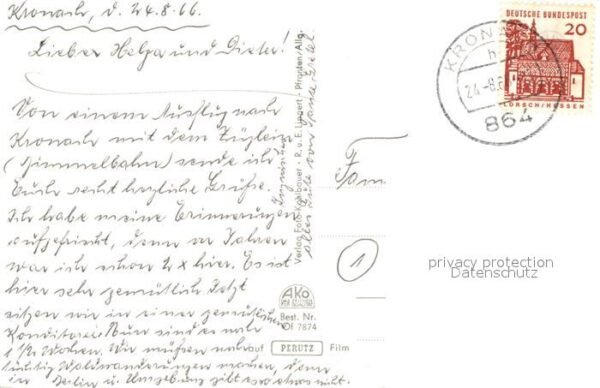 Kronach, d. 24.8.66.
Lieber Helga und Dieter!
Von einem Ausflug nach
Kronach mit dem Züglein
(Bimmelbahn) sende ich
Euch recht herzliche Grüße.
Ich habe meine Erinnerungen
aufgefrischt, denn vor Jahren
war ich schon 2 x hier. Es ist
hier sehr gemütlich. Jetzt
sitzen wir in einer gemütlichen
Konditorei. Nun sind es nur
1 1/2 Wochen. Wir müssen noch auf
tüchtig Waldwanderungen machen, denn
in Berlin u. Umgebung gibt es so etwas nicht.
Inzwischen
alles Gute von Tante Gretel.
Verlag Foto-Kohlbauer - R. u. E. Lippert - Pfronten/Allg.
AKO
Best. Nr.
Of 7874
PERUTZ Film
Fam
1
DEUTSCHE BUNDESPOST
20
LORSCH/HESSEN
KRONACH
h
24.-8.6
864
privacy protection
Datenschutz